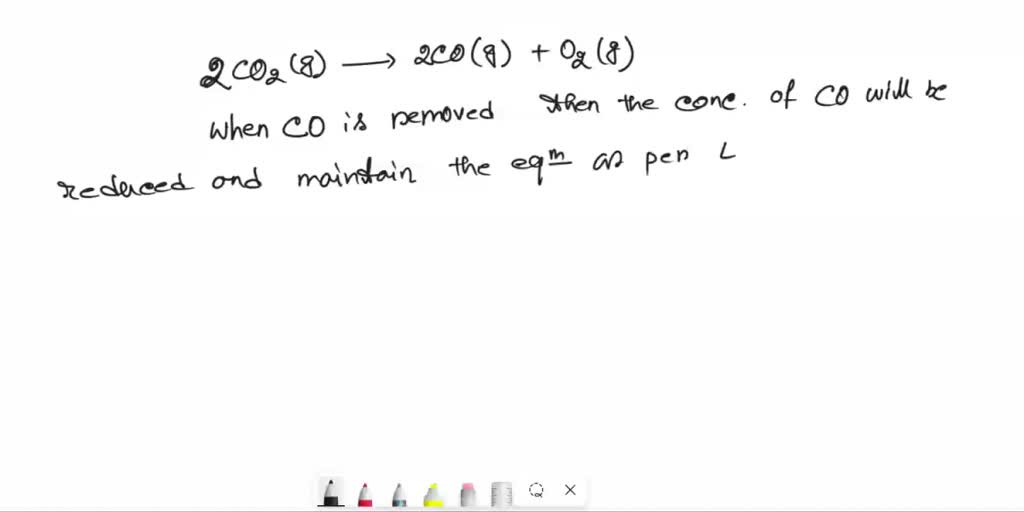 2CO₂(g) → 2CO(g) + O₂(g)
when CO is removed then the conc. of CO will be
reduced and maintain the eqᵐ as per L